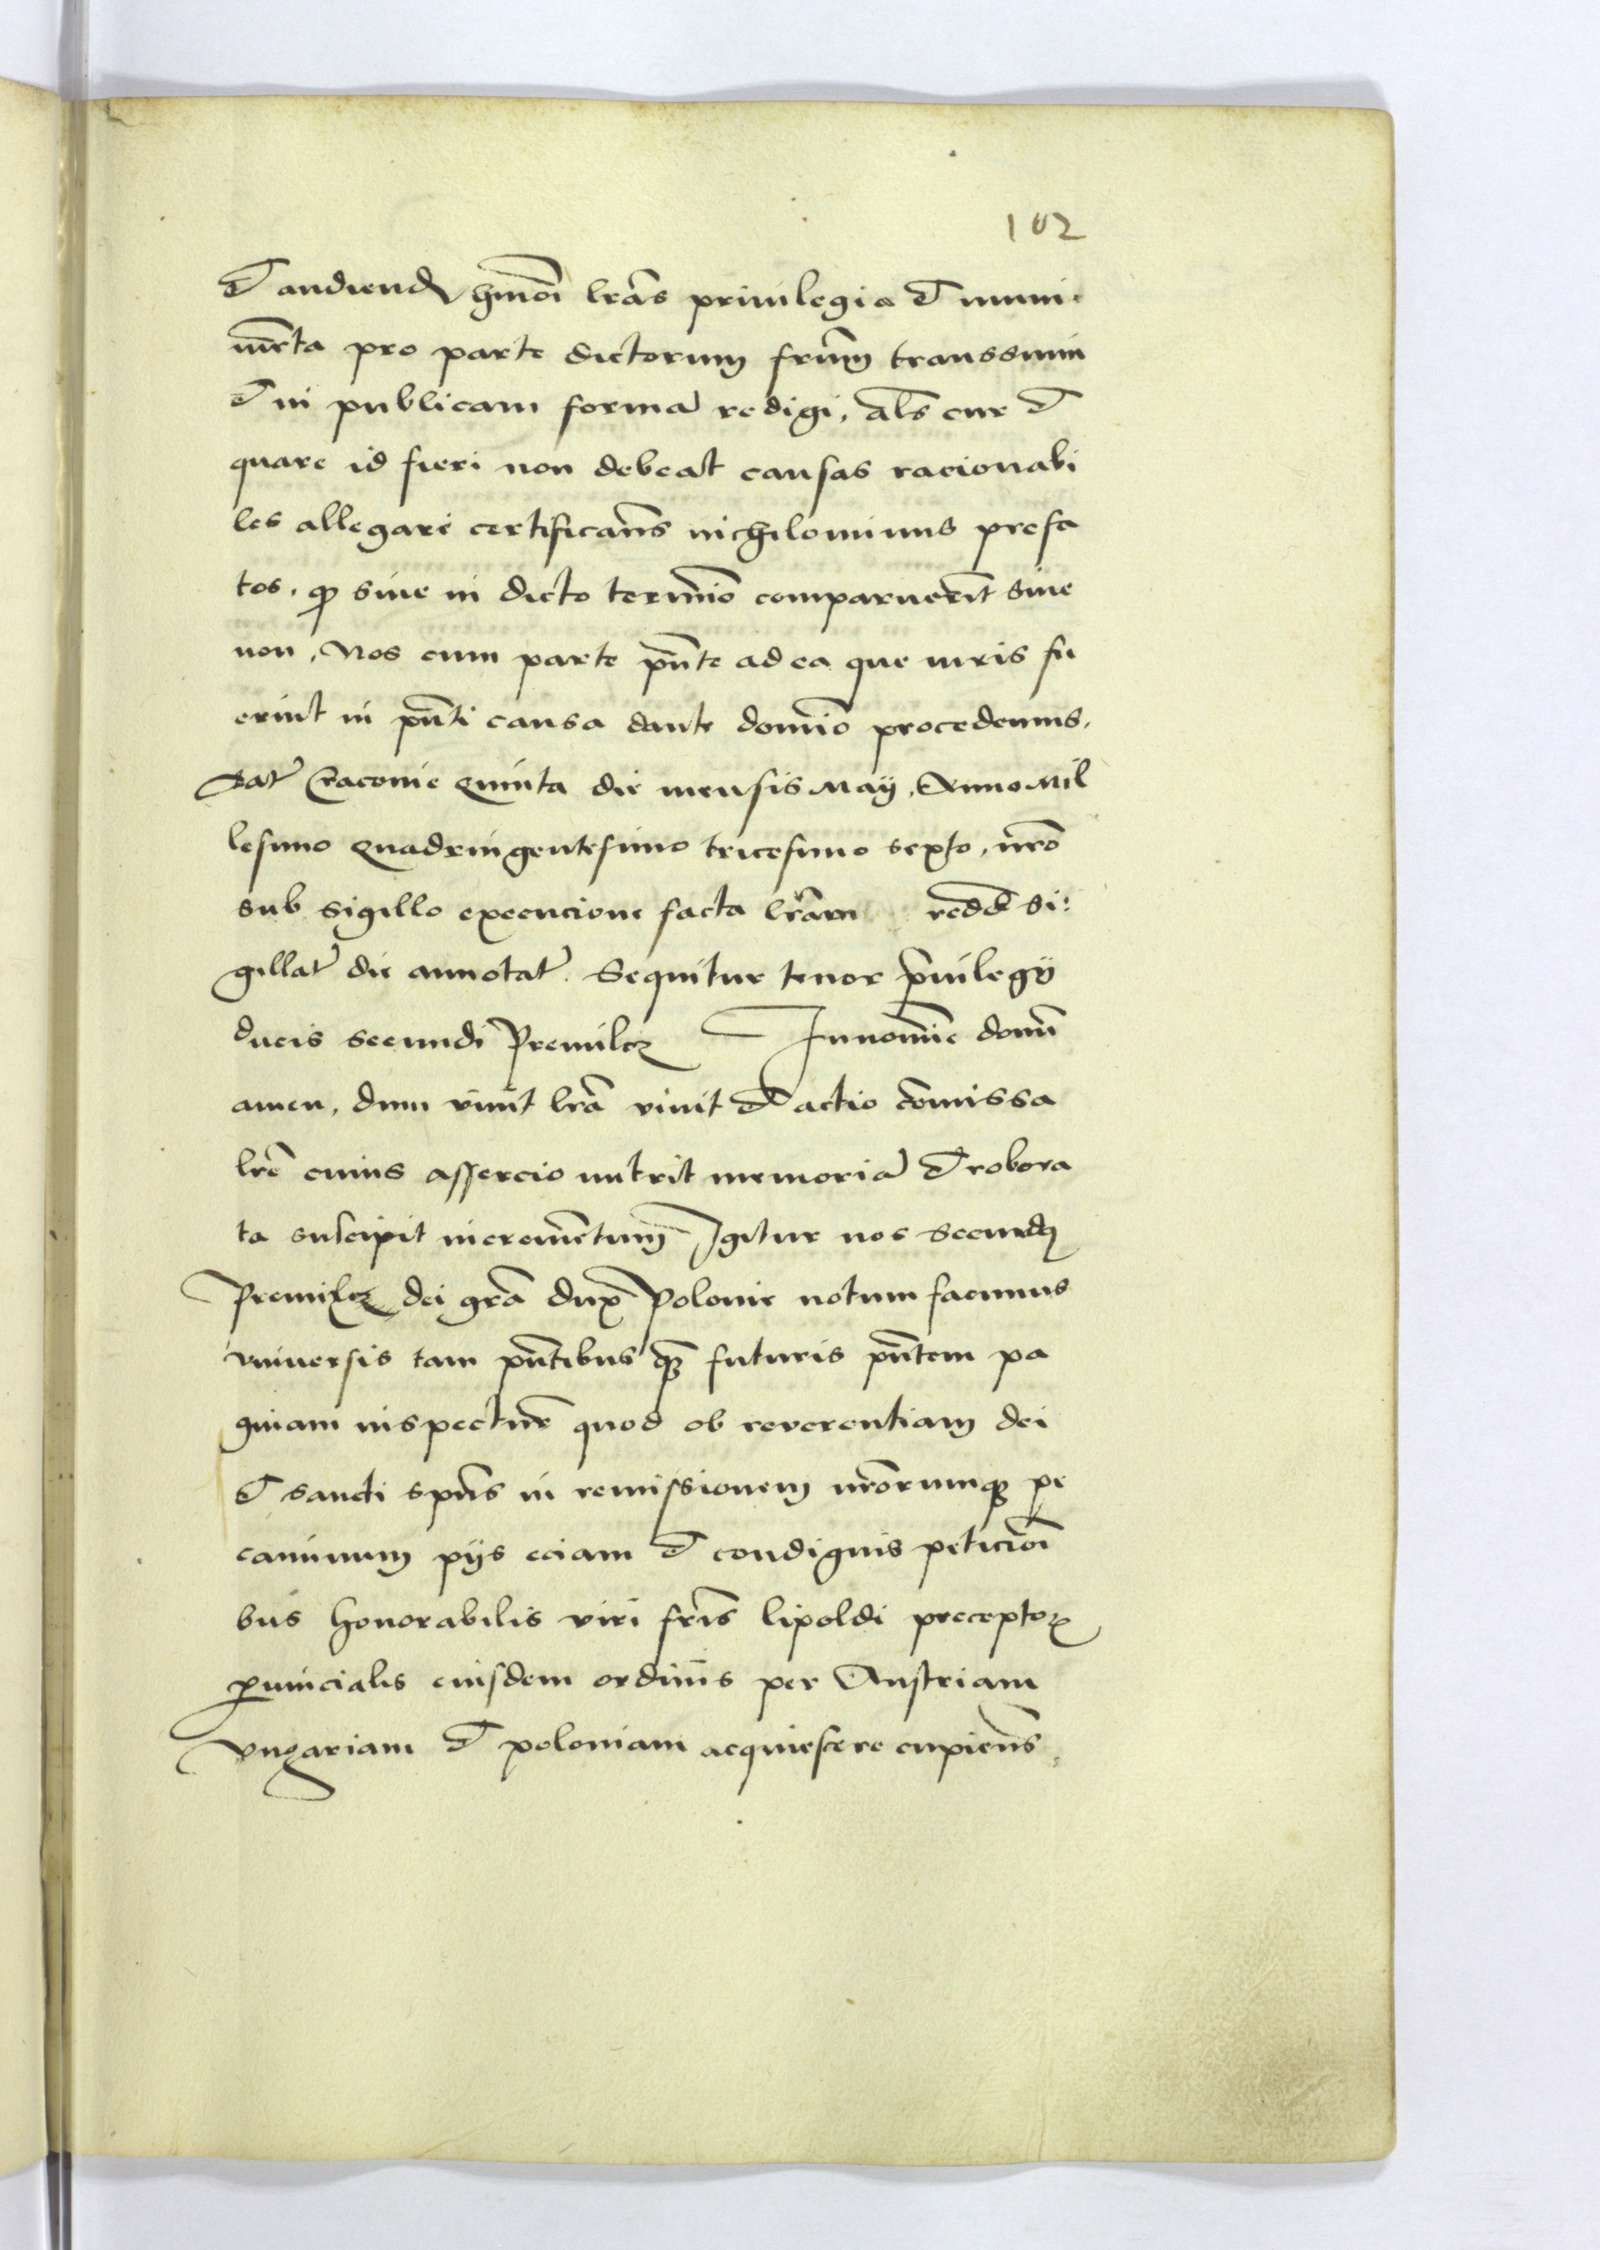 102
et audiend hmoi lras priuilegia et muni
menta pro parte dictorum frum transsumi
et in publicam formā redigi, als cur et
quare id fieri non debeat causas racionabi
les allegare certificans nichilominus prefa
tos. qp siue in dicto termio comparuerit siue
non, Nos cum parte pnte ad ea que iuris fu
erint in pnti causa dante domio procedemus.
Dat Cracouie Quinta die mensis Maij, Anno Mil
lesimo Quadringentesimo tricesimo sexto, nro
sub sigillo execucione facta lram redd si:
gillat die annotat. Sequitur tenor priuilegij
ducis secundi Premilcz In nomie domi
amen, dum viuit lra viuit et actio comissa
lre cuius assercio nutrit memoriā et robora
ta suscipit incrementum Igitur nos Secund
Premilcz dei gra dux Polonie notum facimus
vniuersis tam pntibus qz futuris pntem pa
ginam inspectur quod ob reverentiam dei
et sancti spus in remissionem nrorumqz pe
caminum pijs eciam et condignis peticioi
bus honorabilis viri fris lipoldi preceptor
puincialis eiusdem ordinis per Austriam
vngariam et poloniam acquiescere cupiens